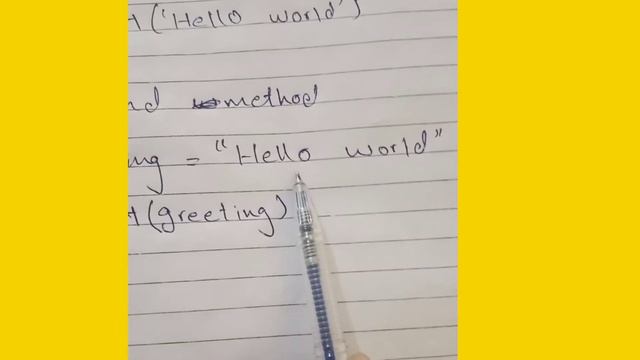 t('Hello world')
nd method
ing = "Hello world"
t(greeting)